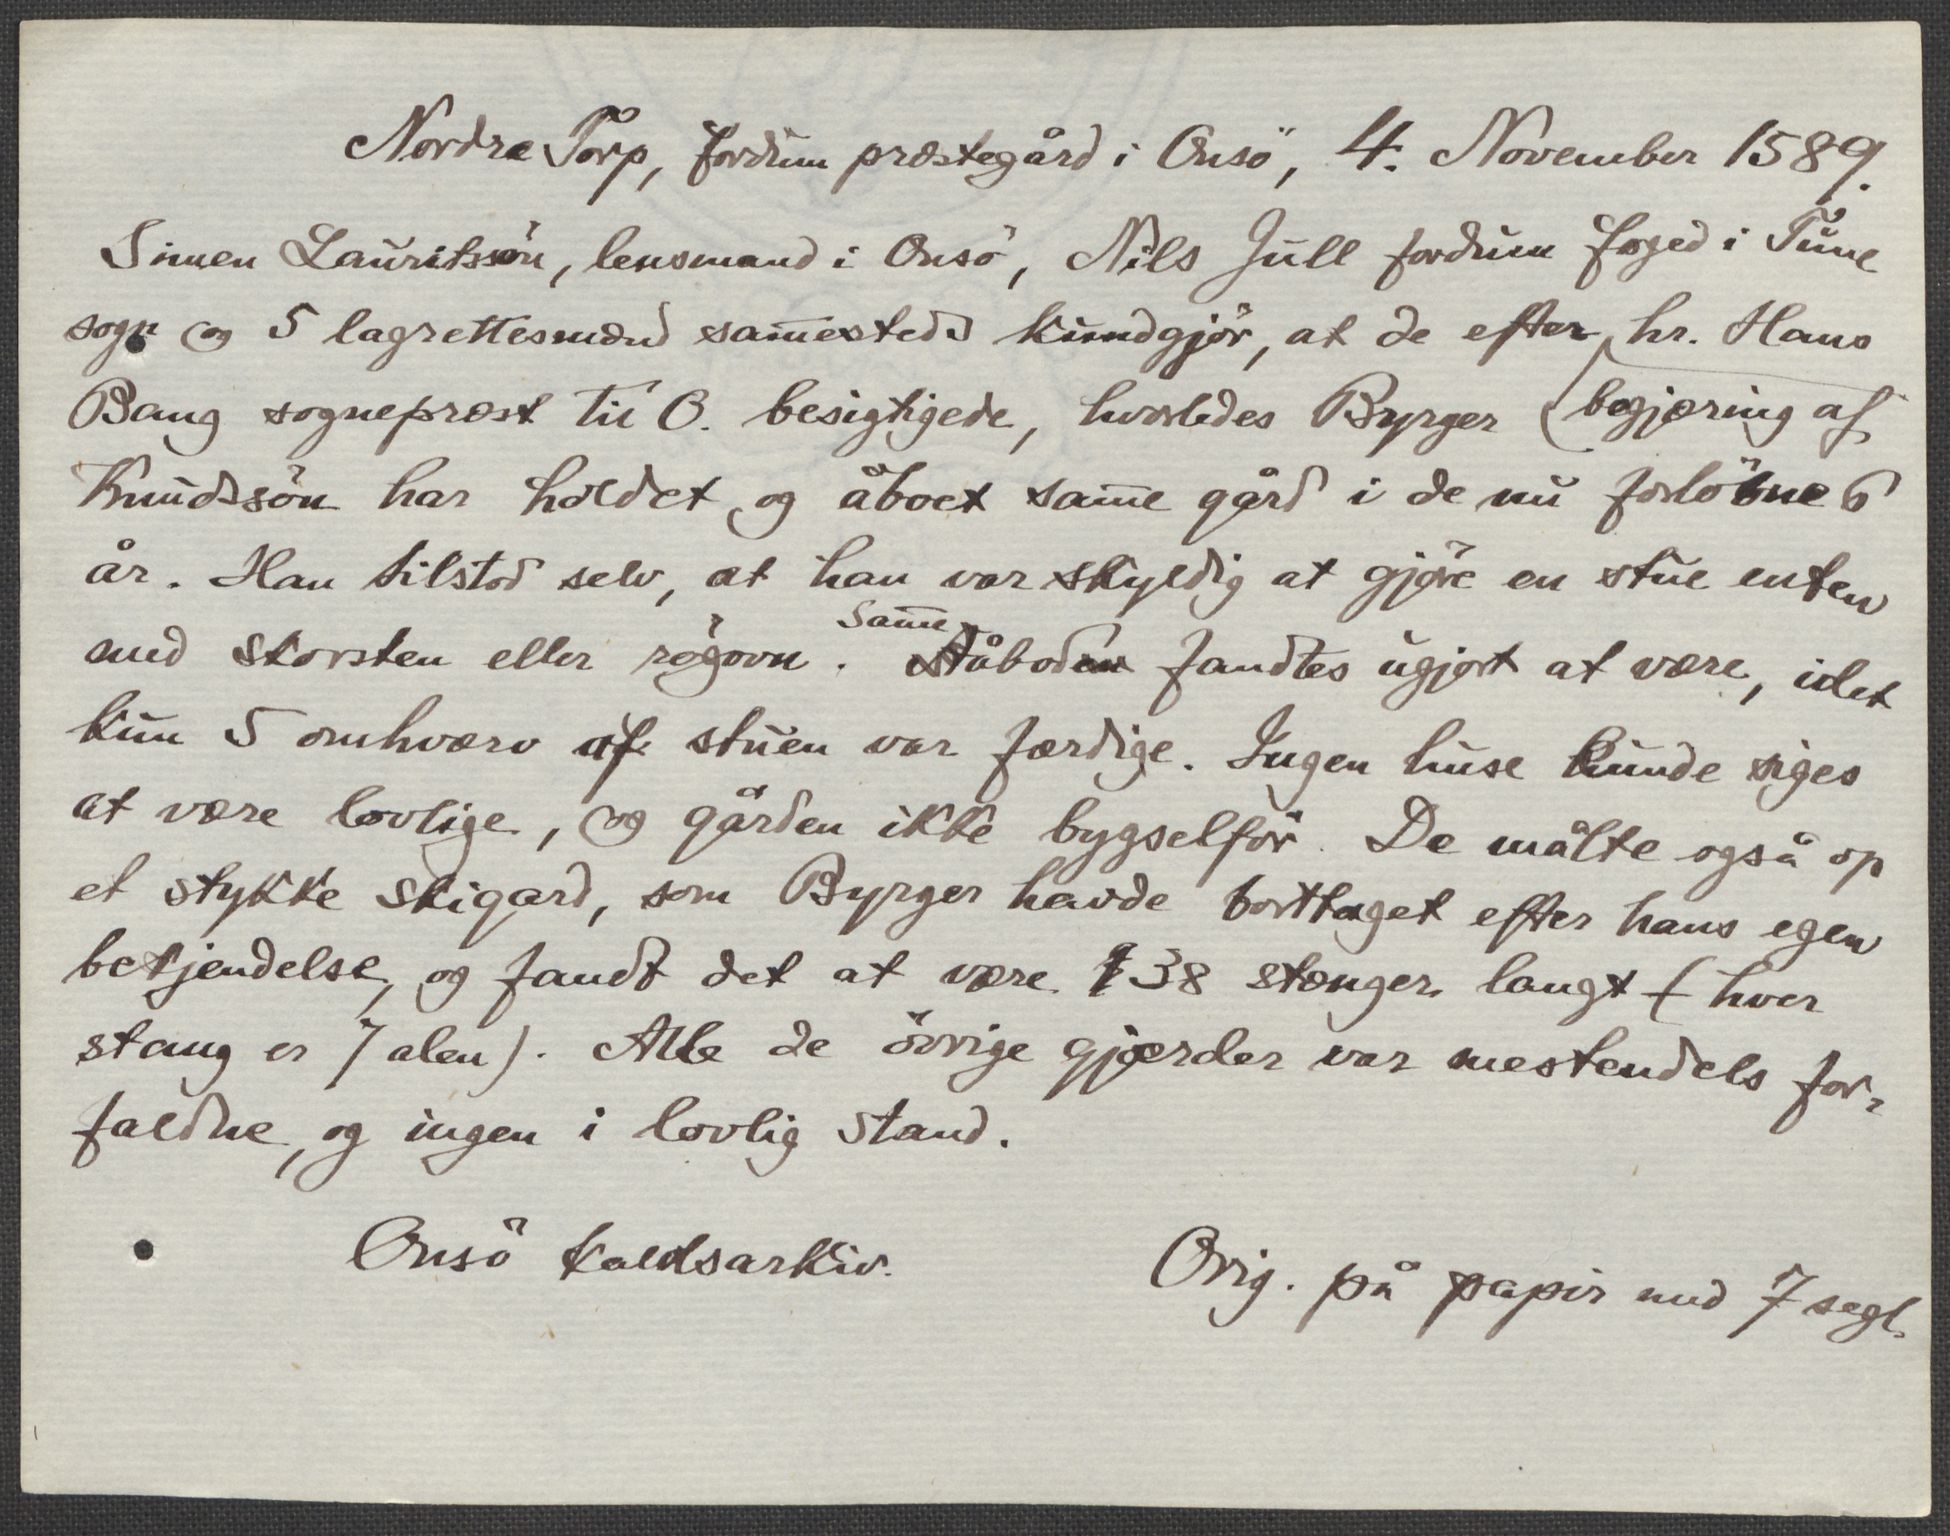 Nordre Torp, fordum præstegård i Onsö, 4. November 1589.
Simen Lauritssön, lensmand i Onsö, Nils Jull fordum foged i Tune
sogn og 5 lagrettesmænd sam̅esteds kundgjör, at de efter hr. Hans
Bang sogneprest til O. besigtigede, hvorledes Byrger (begjæring af
Knudssön har holdet og åboet sam̅e gård i de nu forlöbne 6
år. Han tilstod selv, at han var skyldig at gjöre en stue enten
med skorsten eller rögovn. Sam̅e åbod fandtes ugjort at være, idet
kun 5 omhværv af stuen var færdige. Ingen huse kunde siges
at være lovlige, og gården ikke bygselför. De målte også op
et stykke skigard, som Byrger havde borttaget efter hans egen
bekjendelse, og fandt det at være 138 stænger langt (hver
stang er 7 alen). Alle de övrige gjærder var mestendels for-
faldne, og ingen i lovlig stand.
Onsö kaldsarkiv. Orig. på papir med 7 segl.